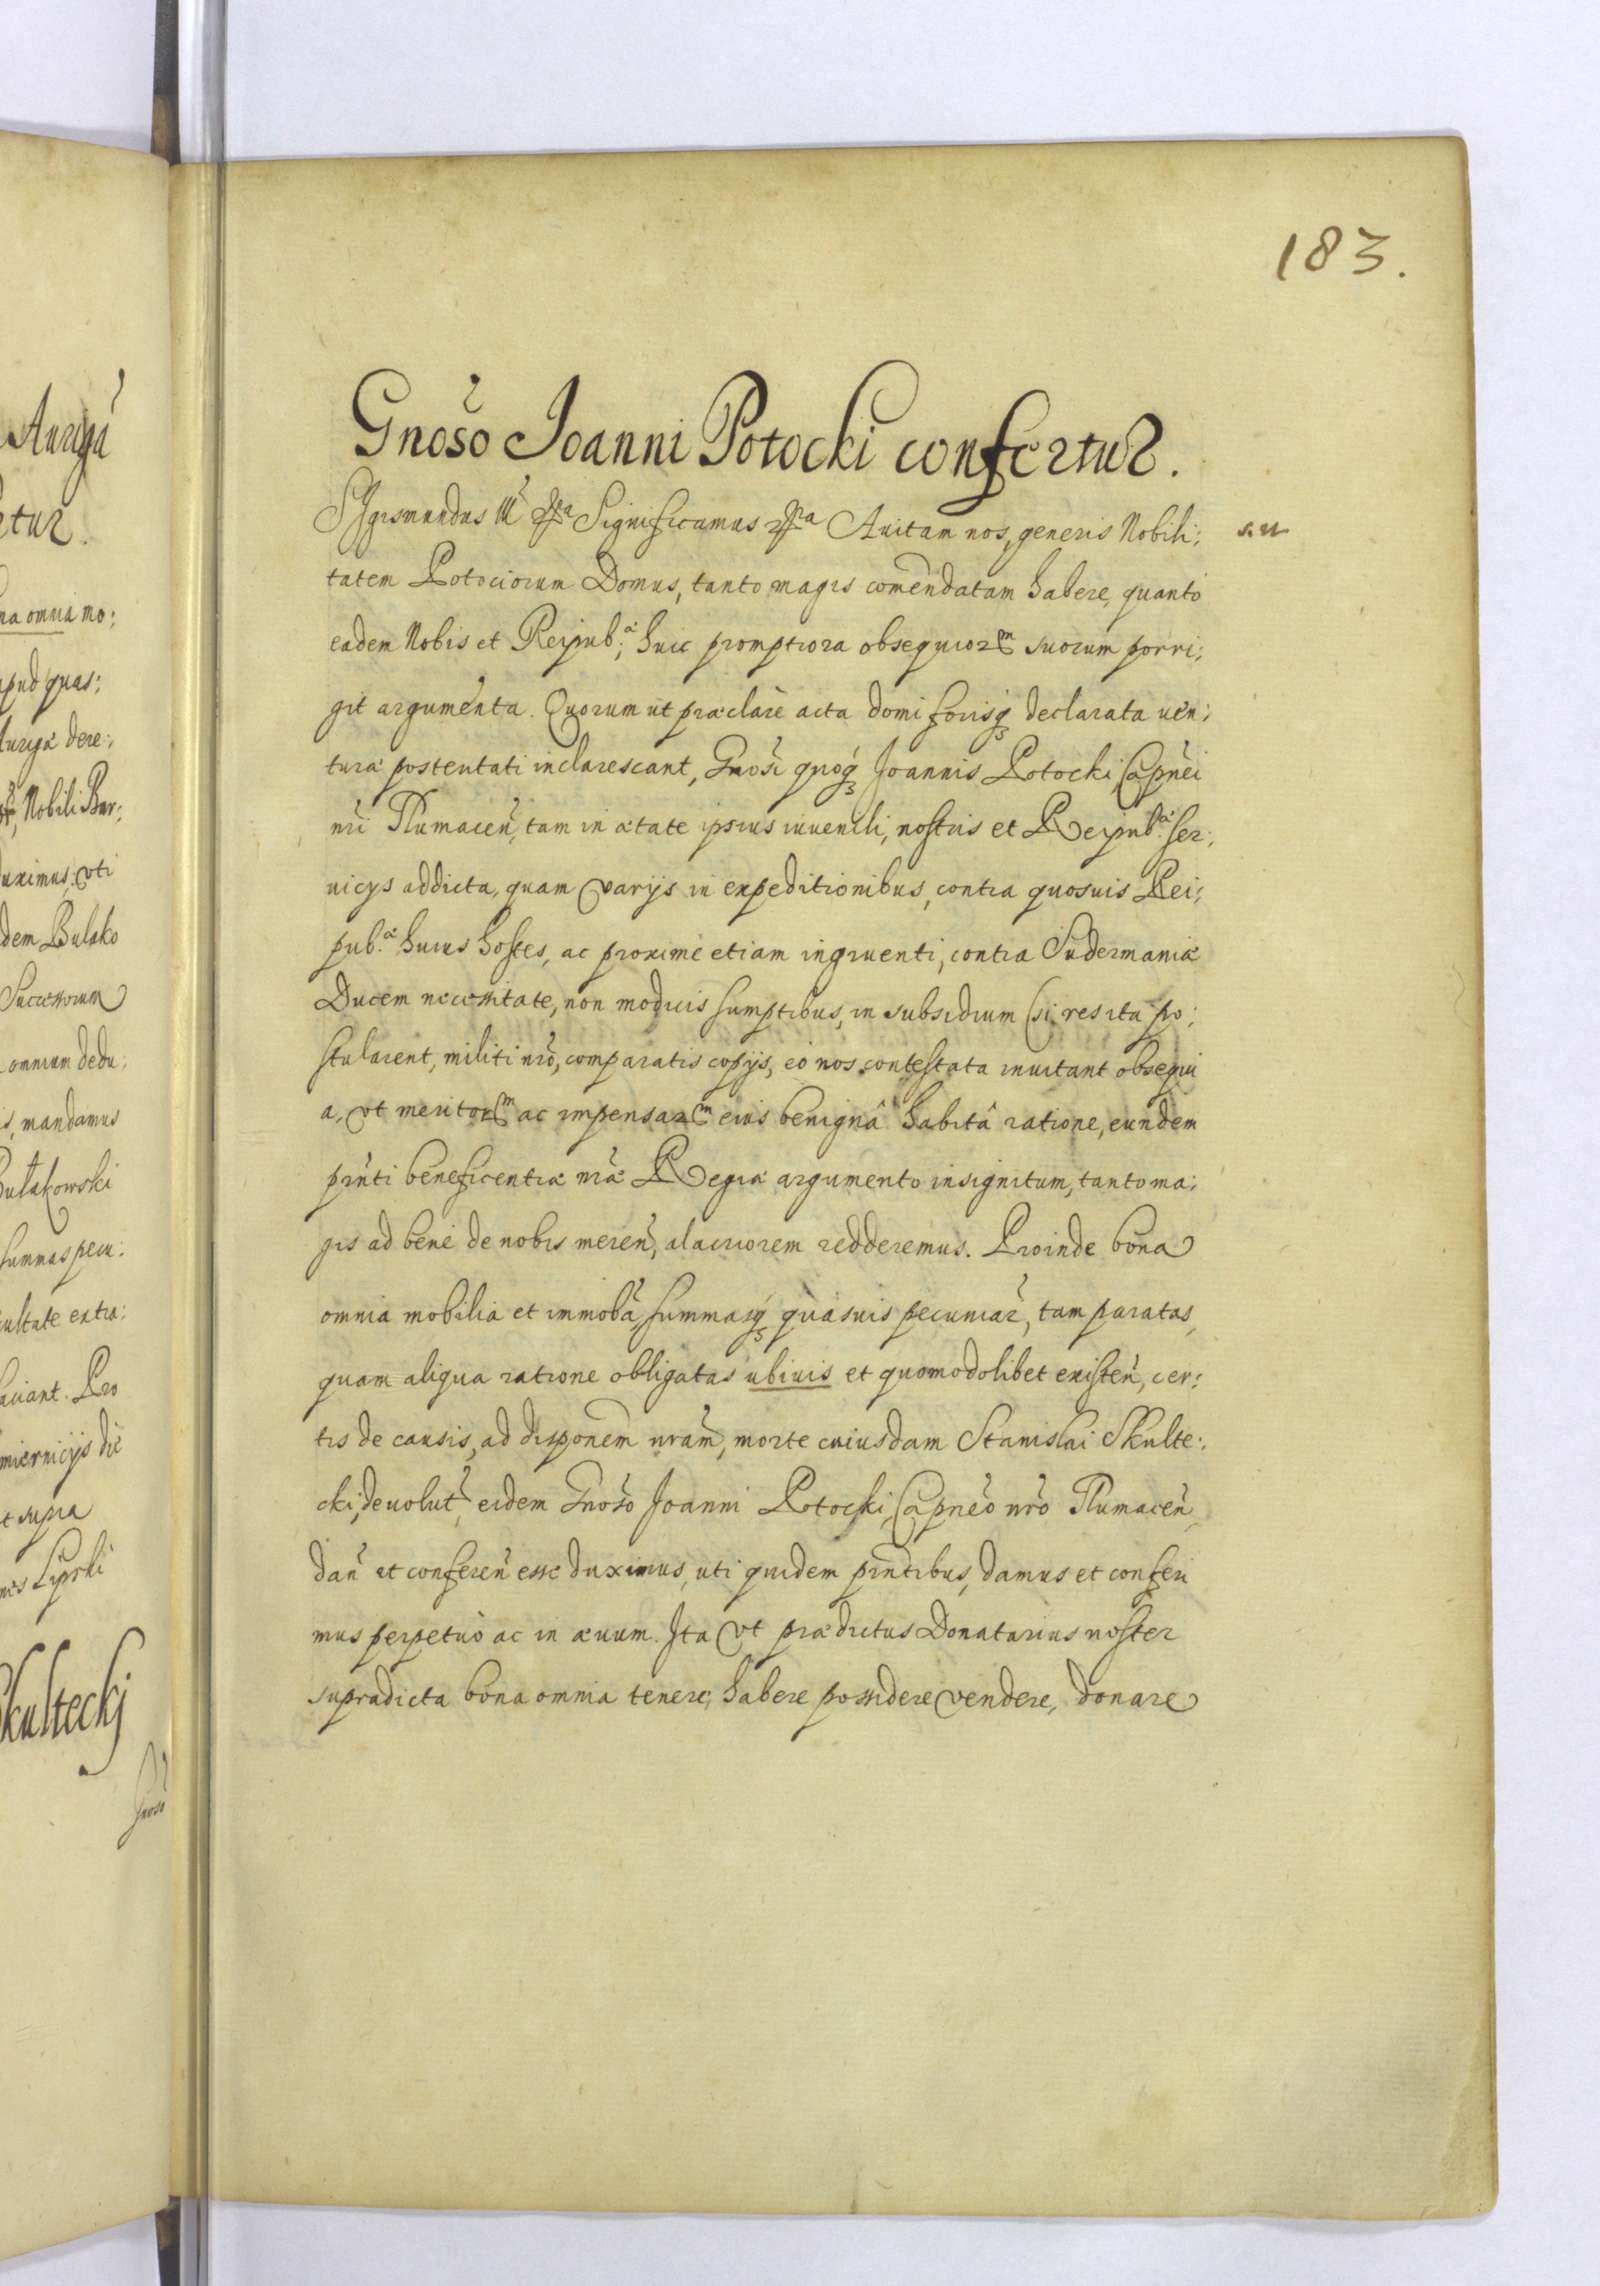 183.
Gnoso Joanni Potocki confertur.
Sigismundus III Significamus Auitam nos, generis Nobili:
s. u
tatem Potociorum Domus, tanto magis comendatam habere, quanto
eadem Nobis et Reipub: huic promptiora obsequior suorum porri:
git argumenta. Quorum ut præclarè acta domi forisq declarata uen:
turæ posteritati inclarescant, Gnosi quoq Joannis Potocki, Capnei
nri Tlumacen, tam in ætate ipsius iuuenili, nostris et Reipub. ser:
uicys addicta, quam varijs in expeditionibus, contra quosuis Rei:
pub. huius hostes, ac proximè etiam ingruenti, contra Sudermaniæ
Ducem necessitate, non modicis sumptibus, in subsidium (si res ita po:
stularent, militi nro, comparatis copijs, eò nos contestata inuitant obsequi
a, vt meritor ac impensar eius benignâ habitâ ratione, eundem
pnti beneficentiæ nræ Regiæ argumento insignitum, tanto ma:
gis ad bene de nobis meren, alacriorem redderemus. Proinde bona
omnia mobilia et immoba, summasq quasuis pecuniar, tam paratas,
quam aliqua ratione obligatas ubiuis et quomodolibet existen, cer:
tis de causis, ad disponem nram, morte cuiusdam Stanislai Skulte:
cki, deuolut, eidem Gnoso Joanni Potocki, Capneo nro Tlumacen,
dan et conferen esse duximus, uti quidem pntibus, damus et conferi
mus perpetuò ac in æuum. Ita vt prædictus Donatarius noster
supradicta bona omnia tenere, habere possidere vendere, donare